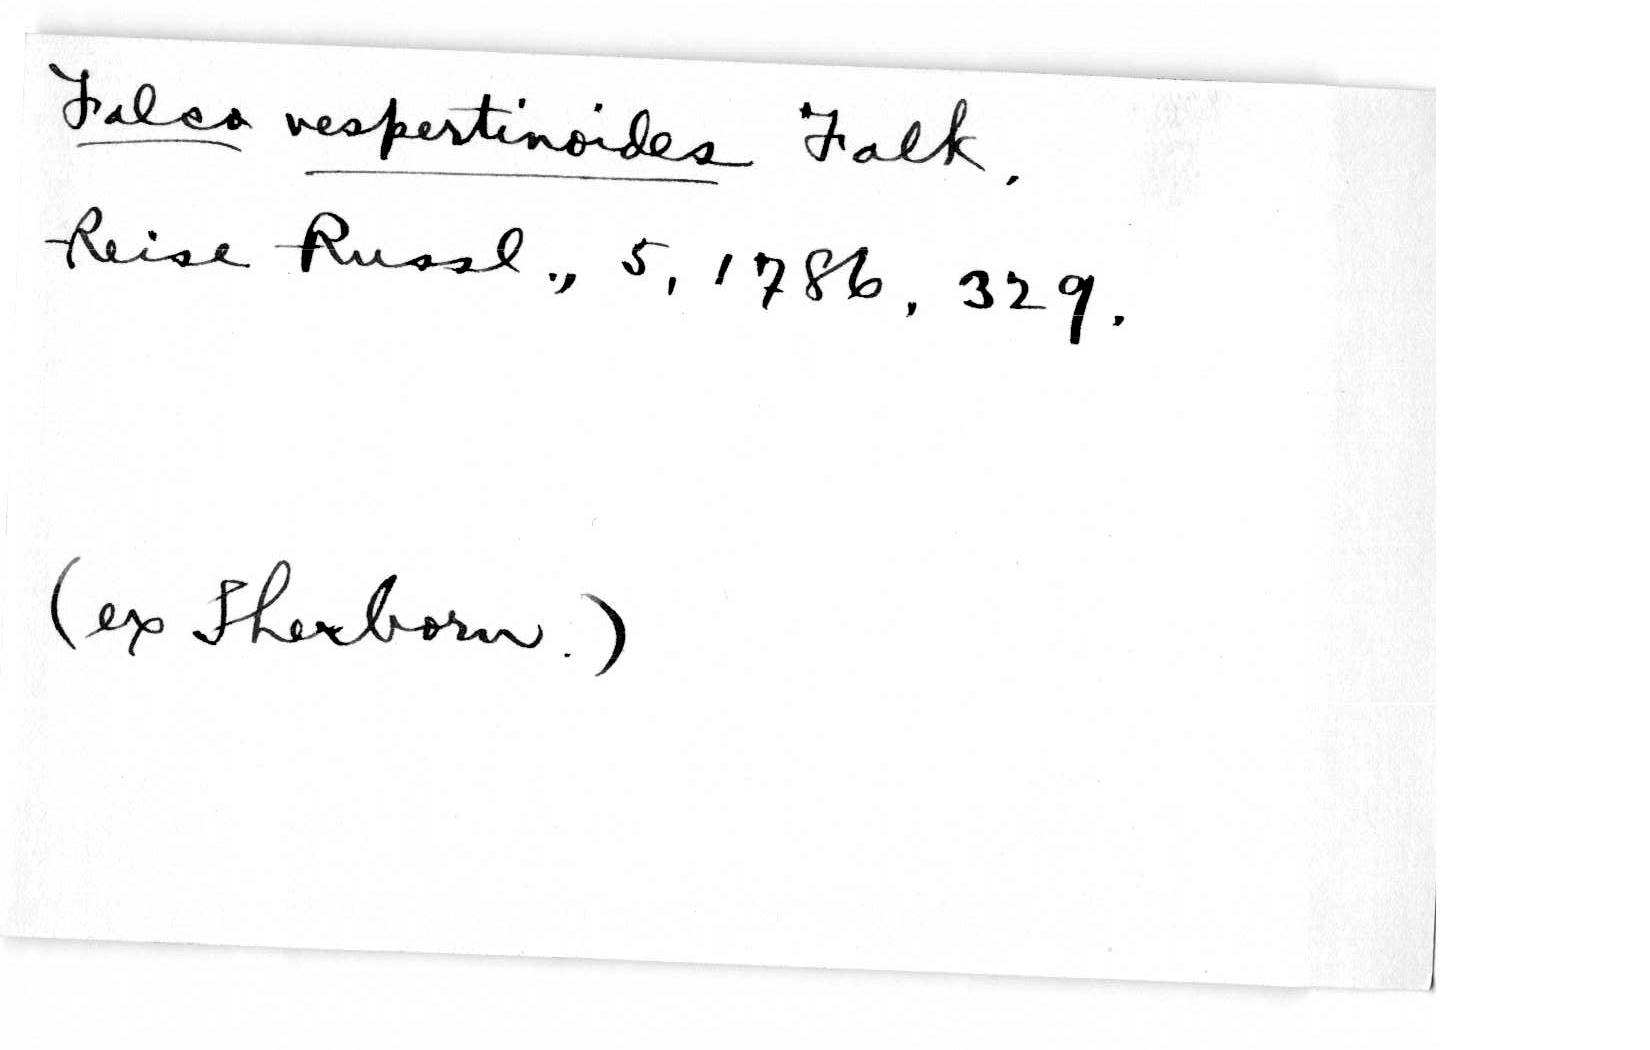 Falco vespertinoides Falk,
Reise Russl., 5, 1786, 329.
(ex Sherborn.)